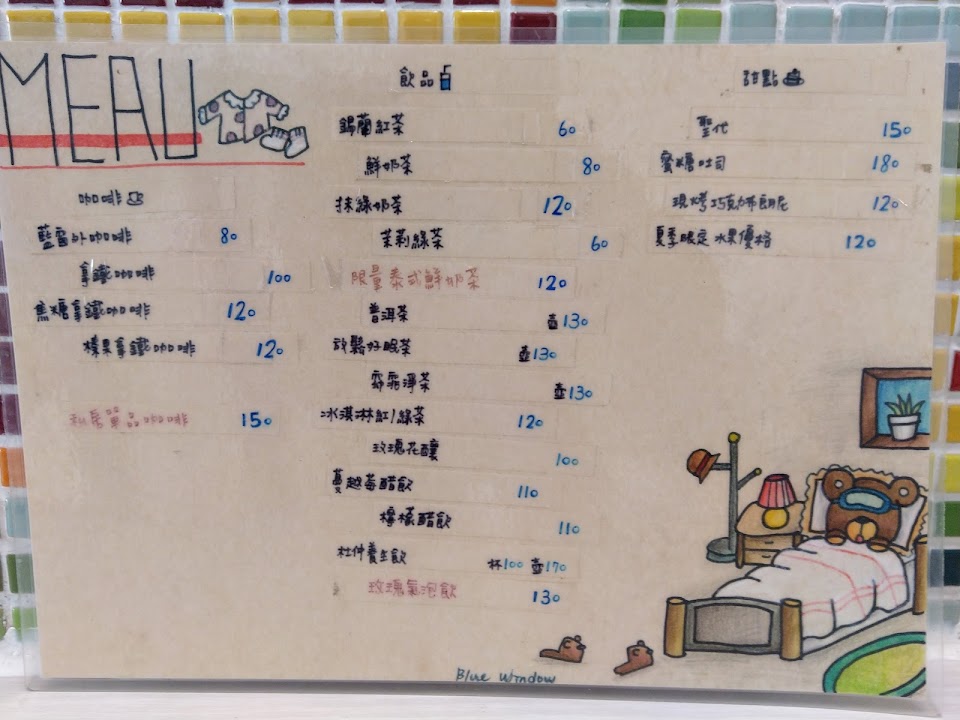 MEAU
咖啡
藍窗外咖啡 80
拿鐵咖啡 100
焦糖拿鐵咖啡 120
榛果拿鐵咖啡 120
私房單品咖啡 150
飲品
錫蘭紅茶 60
鮮奶茶 80
抹綠奶茶 120
茉莉綠茶 60
限量泰式鮮奶茶 120
普洱茶 壺130
放鬆好眠茶 壺130
淨茶 壺130
冰淇淋紅/綠茶 120
玫瑰花釀 100
蔓越莓醋飲 110
檸檬醋飲 110
杜仲養生飲 杯100 壺170
玫瑰氣泡飲 130
甜點
聖代 150
蜜糖吐司 180
現烤巧克力布朗尼 120
夏季限定 水果優格 120
Blue Window